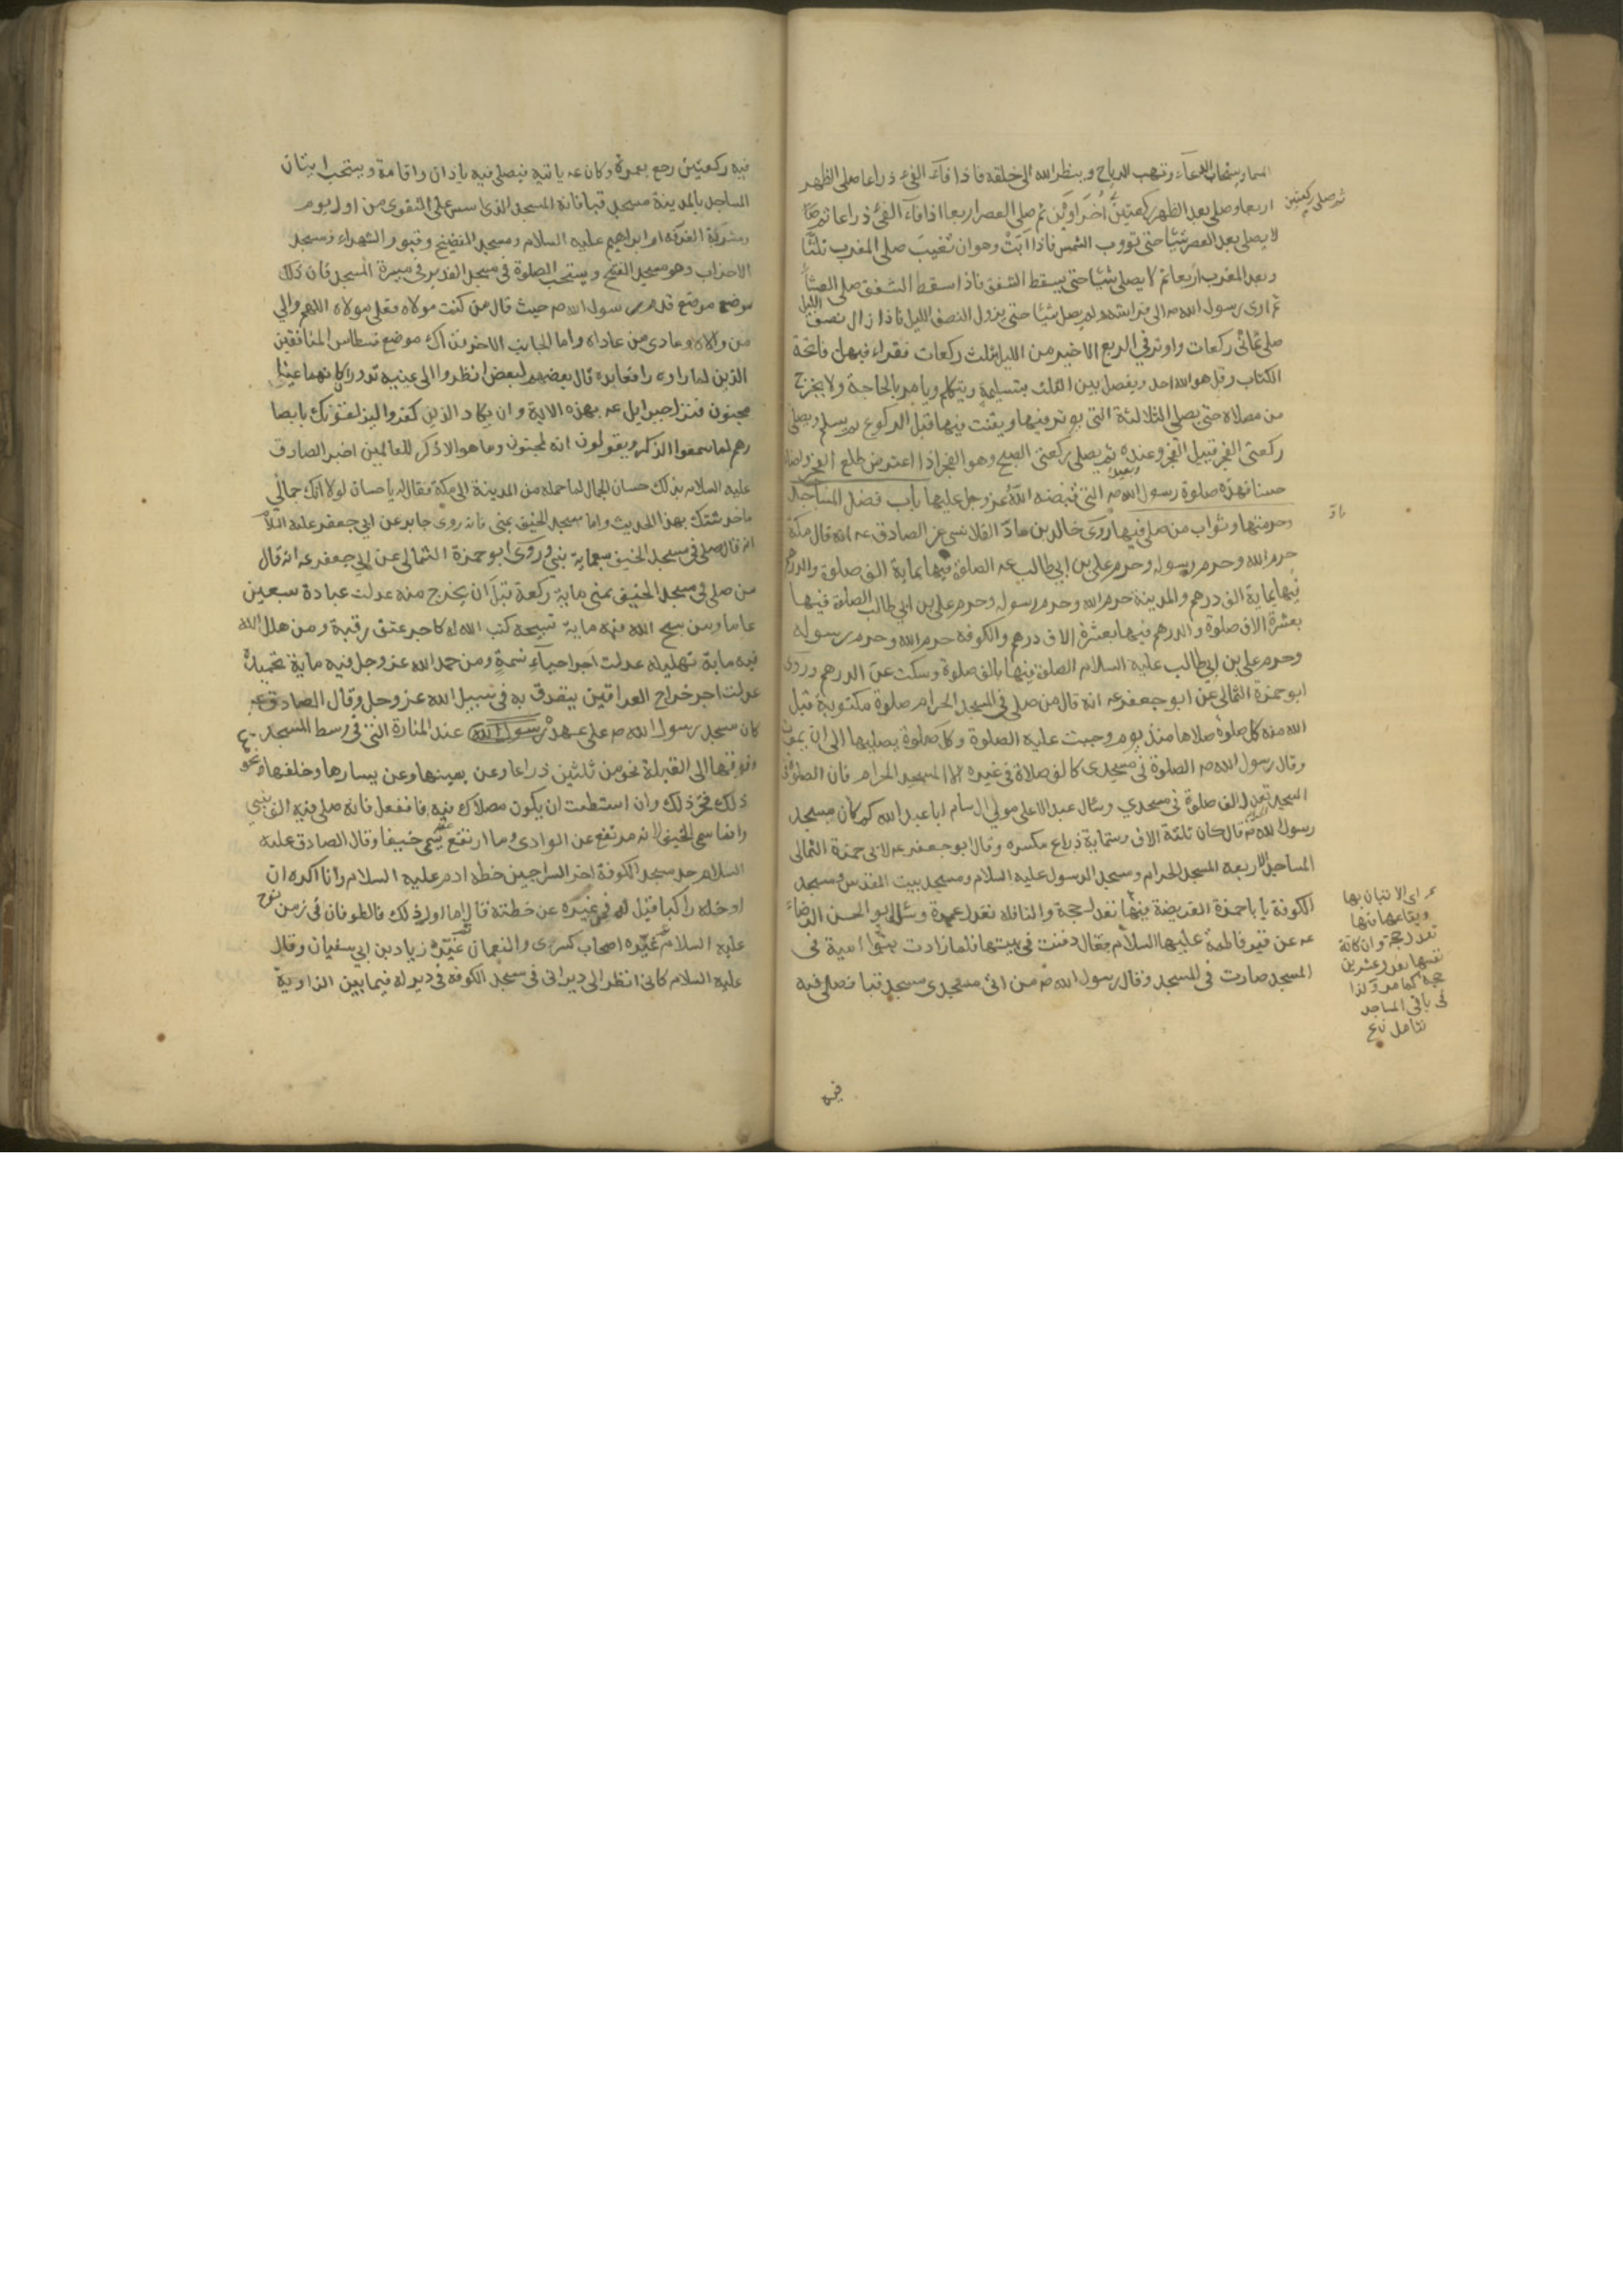 السماء ويستجاب الدعاء وتهب الرياح وينظر الله الى خلقه فاذا فاء الفئ ذراعا صلى الظهر
اربعا وصلى بعد الظهر ركعتين ثم صلى ركعتين اخراوين ثم صلى العصر اربعا اذا فاء الفئ ذراعا ثم
لا يصلى بعد العصر شيئا حتى تؤوب الشمس فاذا آبت وهو ان تغيب صلى المغرب ثلثا
وبعد المغرب اربعا ثم لا يصلى شيئا حتى يسقط الشفق فاذا سقط الشفق صلى العشا
ثم اوى رسول الله ص الى فراشه ولم يصل شيئا حتى يزول النصف الليل فاذا زال نصف الليل
صلى ثمانى ركعات واوتر في الربع الاخير من الليل بثلث ركعات فقراء فيهن فاتحة
الكتاب وقل هو الله احد ويفصل بين الثلث بتسليمة ويتكلم ويامر بالحاجة ولا يخرج
من مصلاه حتى يصلى الثلاثة التى يوتر فيها ويقنت فيها قبل الركوع ثم يسلم ويصلى
ركعتى الفجر قبيل الفجر وعنده وبعيده ثم يصلى ركعتى الصبح وهو الفجر اذا اعترض طلع الفجر واضاء
حسنا فهذه صلوة رسول الله ص التى قبضه الله عز وجل عليها باب فضل المساجد
وحرمتها وثواب من صلى فيها روى خالد بن ماد القلانسى عن الصادق عه انه قال مكة
حرم الله وحرم رسوله وحرم على بن ابي طالب عه الصلوة فيها بماية الف صلوة والدرهم
فيها بماية الف درهم والمدينة حرم الله وحرم رسوله وحرم على بن ابي طالب الصلوة فيها
بعشرة الاف صلوة والدرهم فيها بعشرة الاف درهم والكوفه حرم الله وحرم رسوله
وحرم على بن ابي طالب عليه السلام الصلوة فيها بالف صلوة وسكت عن الدرهم وروى
ابو حمزة الثمالى عن ابو جعفر عه انه قال من صلى في المسجد الحرام صلوة مكتوبة قبل
الله منه كل صلوة صلاها منذ يوم وجبت عليه الصلوة وكل صلوة يصليها الى ان يموت
وقال رسول الله ص الصلوة فى مسجدى كالف صلاة فى غيره الا المسجد الحرام فان الصلوة فى
المسجد تعدل الف صلوة فى مسجدي وسئال عبد الاعلى مولى ال سام ابا عبد الله كم كان مسجد
رسول الله ص قال كان ثلثة الاف وستماية ذراع مكسره وقال ابو جعفر عه لابى حمزة الثمالى
المساجد الاربعه المسجد الحرام ومسجد الرسول عليه السلام ومسجد بيت المقدس ومسجد
الكوفة يا با حمزة الفريضة فيها تعدل حجة والنافله تعدل عمرة وسئل ابو الحسن الرضاء
عه عن قبر فاطمة عليها السلام فقال دفنت فى بيتها فلما زادت بنوا امية فى
المسجد صارت فى المسجد وقال رسول الله ص من اتى مسجدى مسجد قبا فصلى فيه
ثم صلى ركعتين
ماد
اى الاتيان بها
فيه
فيه ركعتين رجع بعمرة وكان عه ياتيه فيصلى فيه باذان واقامة ويستحب اتيان
المساجد بالمدينة مسجد قبا فانه المسجد الذى اسس على التقوى من اول يوم
ومشربة الغرفه ام ابراهيم عليه السلام ومسجد الفضيخ وقبور الشهداء ومسجد
الاحزاب وهو مسجد الفتح ويستحب الصلوة فى مسجد الغدير فى ميسرة المسجد فان ذلك
موضع قدم رسول الله ص حيث قال من كنت مولاه فعلى مولاه اللهم والي
من والاه وعادى من عاداه واما الجانب الاخر فذاك موضع فسطاس المنافقين
الذين لما راوه رافعا يده قال بعضهم لبعض انظروا الى عينيه تدوران كانهما عينا
مجنون فنزل جبرايل عه بهذه الاية وان يكاد الذين كفروا ليزلقونك بابصا
رهم لما سمعوا الذكر ويقولون انه لمجنون وما هو الا ذكر للعالمين اخبر الصادق
عليه السلام بذلك حسان الجمال لما حمله من المدينة الى مكة فقال له يا حسان لولا انك جمالي
ما حدثتك بهذا الحديث واما مسجد الخيف بمنى فانه روى جابر عن ابي جعفر عليه السلام
انه قال صلى فى مسجد الخيف سبعماية نبي وروى ابو حمزة الثمالى عن ابي جعفر عه انه قال
من صلى فى مسجد الخيف بمنى ماية ركعة قبل ان يخرج منه عدلت عبادة سبعين
عاما ومن سبح الله فيه ماية تسبيحة كتب الله له كاجر عتق رقبة ومن هلل الله
فيه ماية تهليله عدلت اجر احياء نسمة ومن حمد الله عز وجل فيه ماية تحميدة
عدلت اجر خراج العراقين يتصدق به فى سبيل الله عز وجل وقال الصادق عه
كان مسجد رسول الله ص على عهد رسول الله عند المنارة التى فى وسط المسجد
وفوقها الى القبلة نحو من ثلثين ذراعا وعن يمينها وعن يسارها وخلفها نحو
ذلك فتحر ذلك وان استطعت ان يكون مصلاك فيه فافعل فانه صلى فيه الف نبي
وانما سمى الخيف لانه مرتفع عن الوادى وما ارتفع عنه يسمى خيفا وقال الصادق عليه
السلام حد مسجد الكوفة اخر السراجين خطه ادم عليه السلام وانا اكره ان
ادخله راكبا قيل له فمن غيره عن خطته قال اما اول ذلك فالطوفان فى زمن نوح
عليه السلام ثم غيره اصحاب كسرى والنعمان ثم غيره زياد بن ابي سفيان وقال
عليه السلام كانى انظر الى ديرانى فى مسجد الكوفة فى دير له فيما بين الزاوية